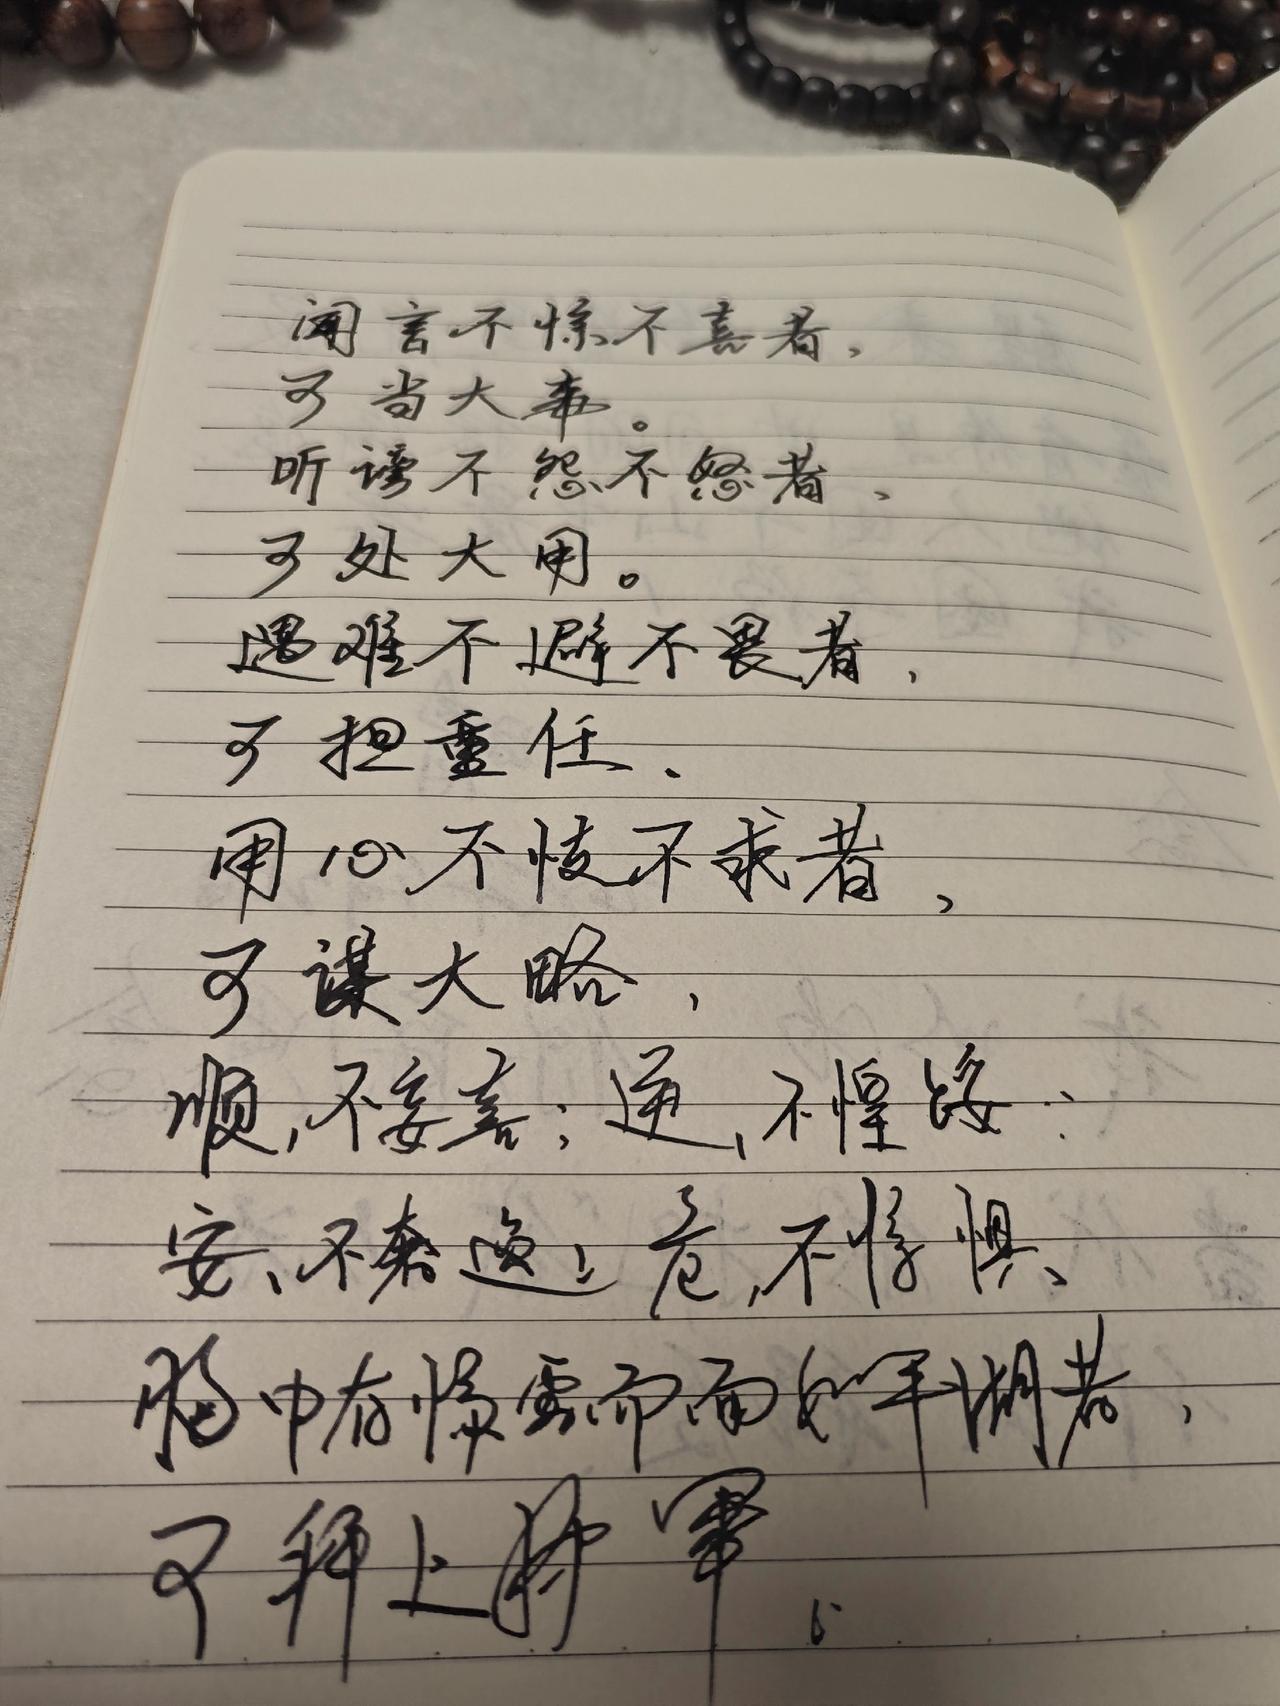 闻言不惊不喜者,
可当大事。
听谤不怨不怒者、
可处大用。
遇难不避不畏者,
可担重任、
用心不忮不求者,
可谋大略,
顺,不妄喜;逆,不惶馁;
安,不奢逸;危,不惊惧、
胸中有惊雷而面如平湖者,
可拜上将军、